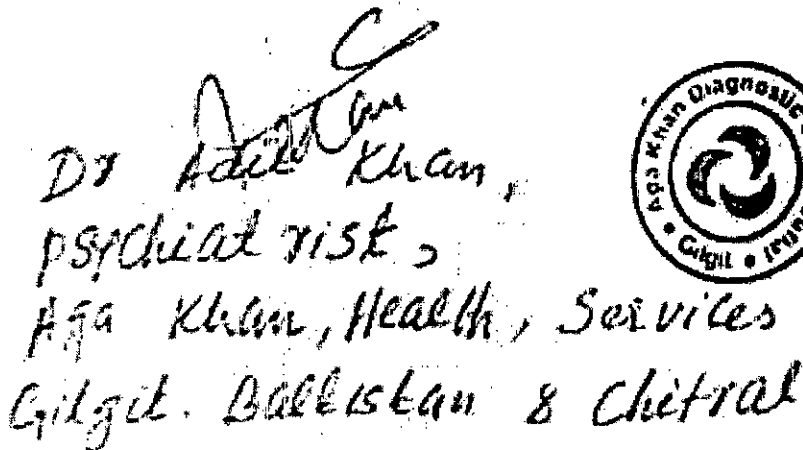 Dr Adil Khan,
psychiatrist,
Aga Khan, Health, Services
Gilgit. Baltistan & Chitral
Aga Khan Diagnostic
Gilgit